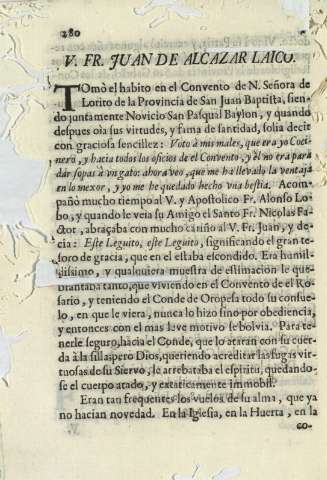 280
V. FR. JUAN DE ALCAZAR LAICO.
Tomò el habito en el Convento de N. Señora de
Lorito de la Provincia de San Juan Baptista, sien-
do juntamente Novicio San Pasqual Baylon, y quando
despues oìa sus virtudes, y fama de santidad, solia decir
con graciosa sencillez: Voto à mis males, que era yo Coci-
nero, y hacia todos los oficios de el Convento, y èl no era para
dàr sopas à vn gato: ahora veo, que me ha llevado la ventaja
en lo mexor, y yo me he quedado hecho vna bestia. Acom-
pañò mucho tiempo al V. y Apostolico Fr. Alonso Lo-
bo, y quando le veìa su Amigo el Santo Fr. Nicolas Fa-
ctor, abraçaba con mucho cariño al V. Fr. Juan, y de-
cia: Este Leguito, este Leguito, significando el gran te-
soro de gracia, que en el estaba escondido. Era humil-
dissimo, y qualquiera muestra de estimacion le que-
brantaba tanto, que viviendo en el Convento de el Ro-
sario, y teniendo el Conde de Oropesa todo su consue-
lo, en que le viera, nunca lo hizo sino por obediencia,
y entonces con el mas leve motivo se bolvia. Para te-
nerle seguro, hacia el Conde, que lo ataran con su cuer-
da à la silla; pero Dios, queriendo acreditar las fugas vir-
tuosas de su Siervo, le arrebataba el espiritu, quedando-
se el cuerpo atado, y extaticamente immobil.
Eran tan frequentes los vuelos de su alma, que ya
no hacian novedad. En la Iglesia, en la Huerta, en la
co-